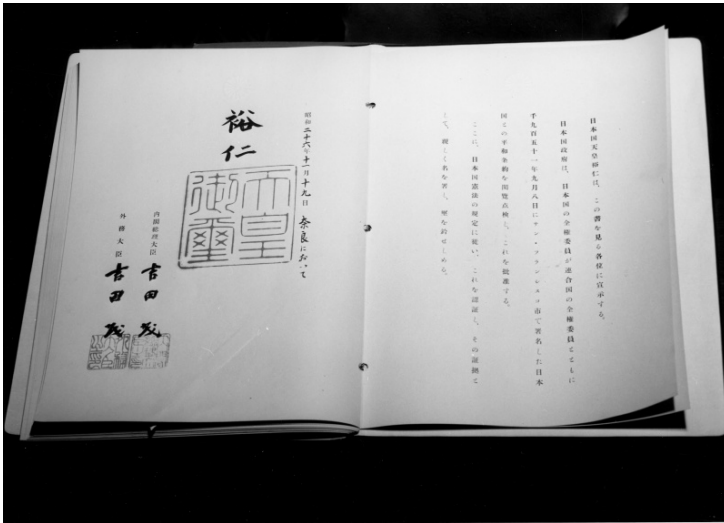 日本国天皇裕仁は、この書を見る各位に宣示する。
日本国政府は、日本国の全権委員が連合国の全権委員とともに
千九百五十一年九月八日にサン・フランシスコ市で署名した日本
国との平和条約を閲覧点検し、これを批准する。
ここに、日本国憲法の規定に従い、これを認証し、その証拠と
して、親しく名を署し、璽を鈐せしめる。
昭和二十六年十一月十九日 奈良において
裕仁
天皇御璽
内閣総理大臣 吉田茂
外務大臣 吉田茂